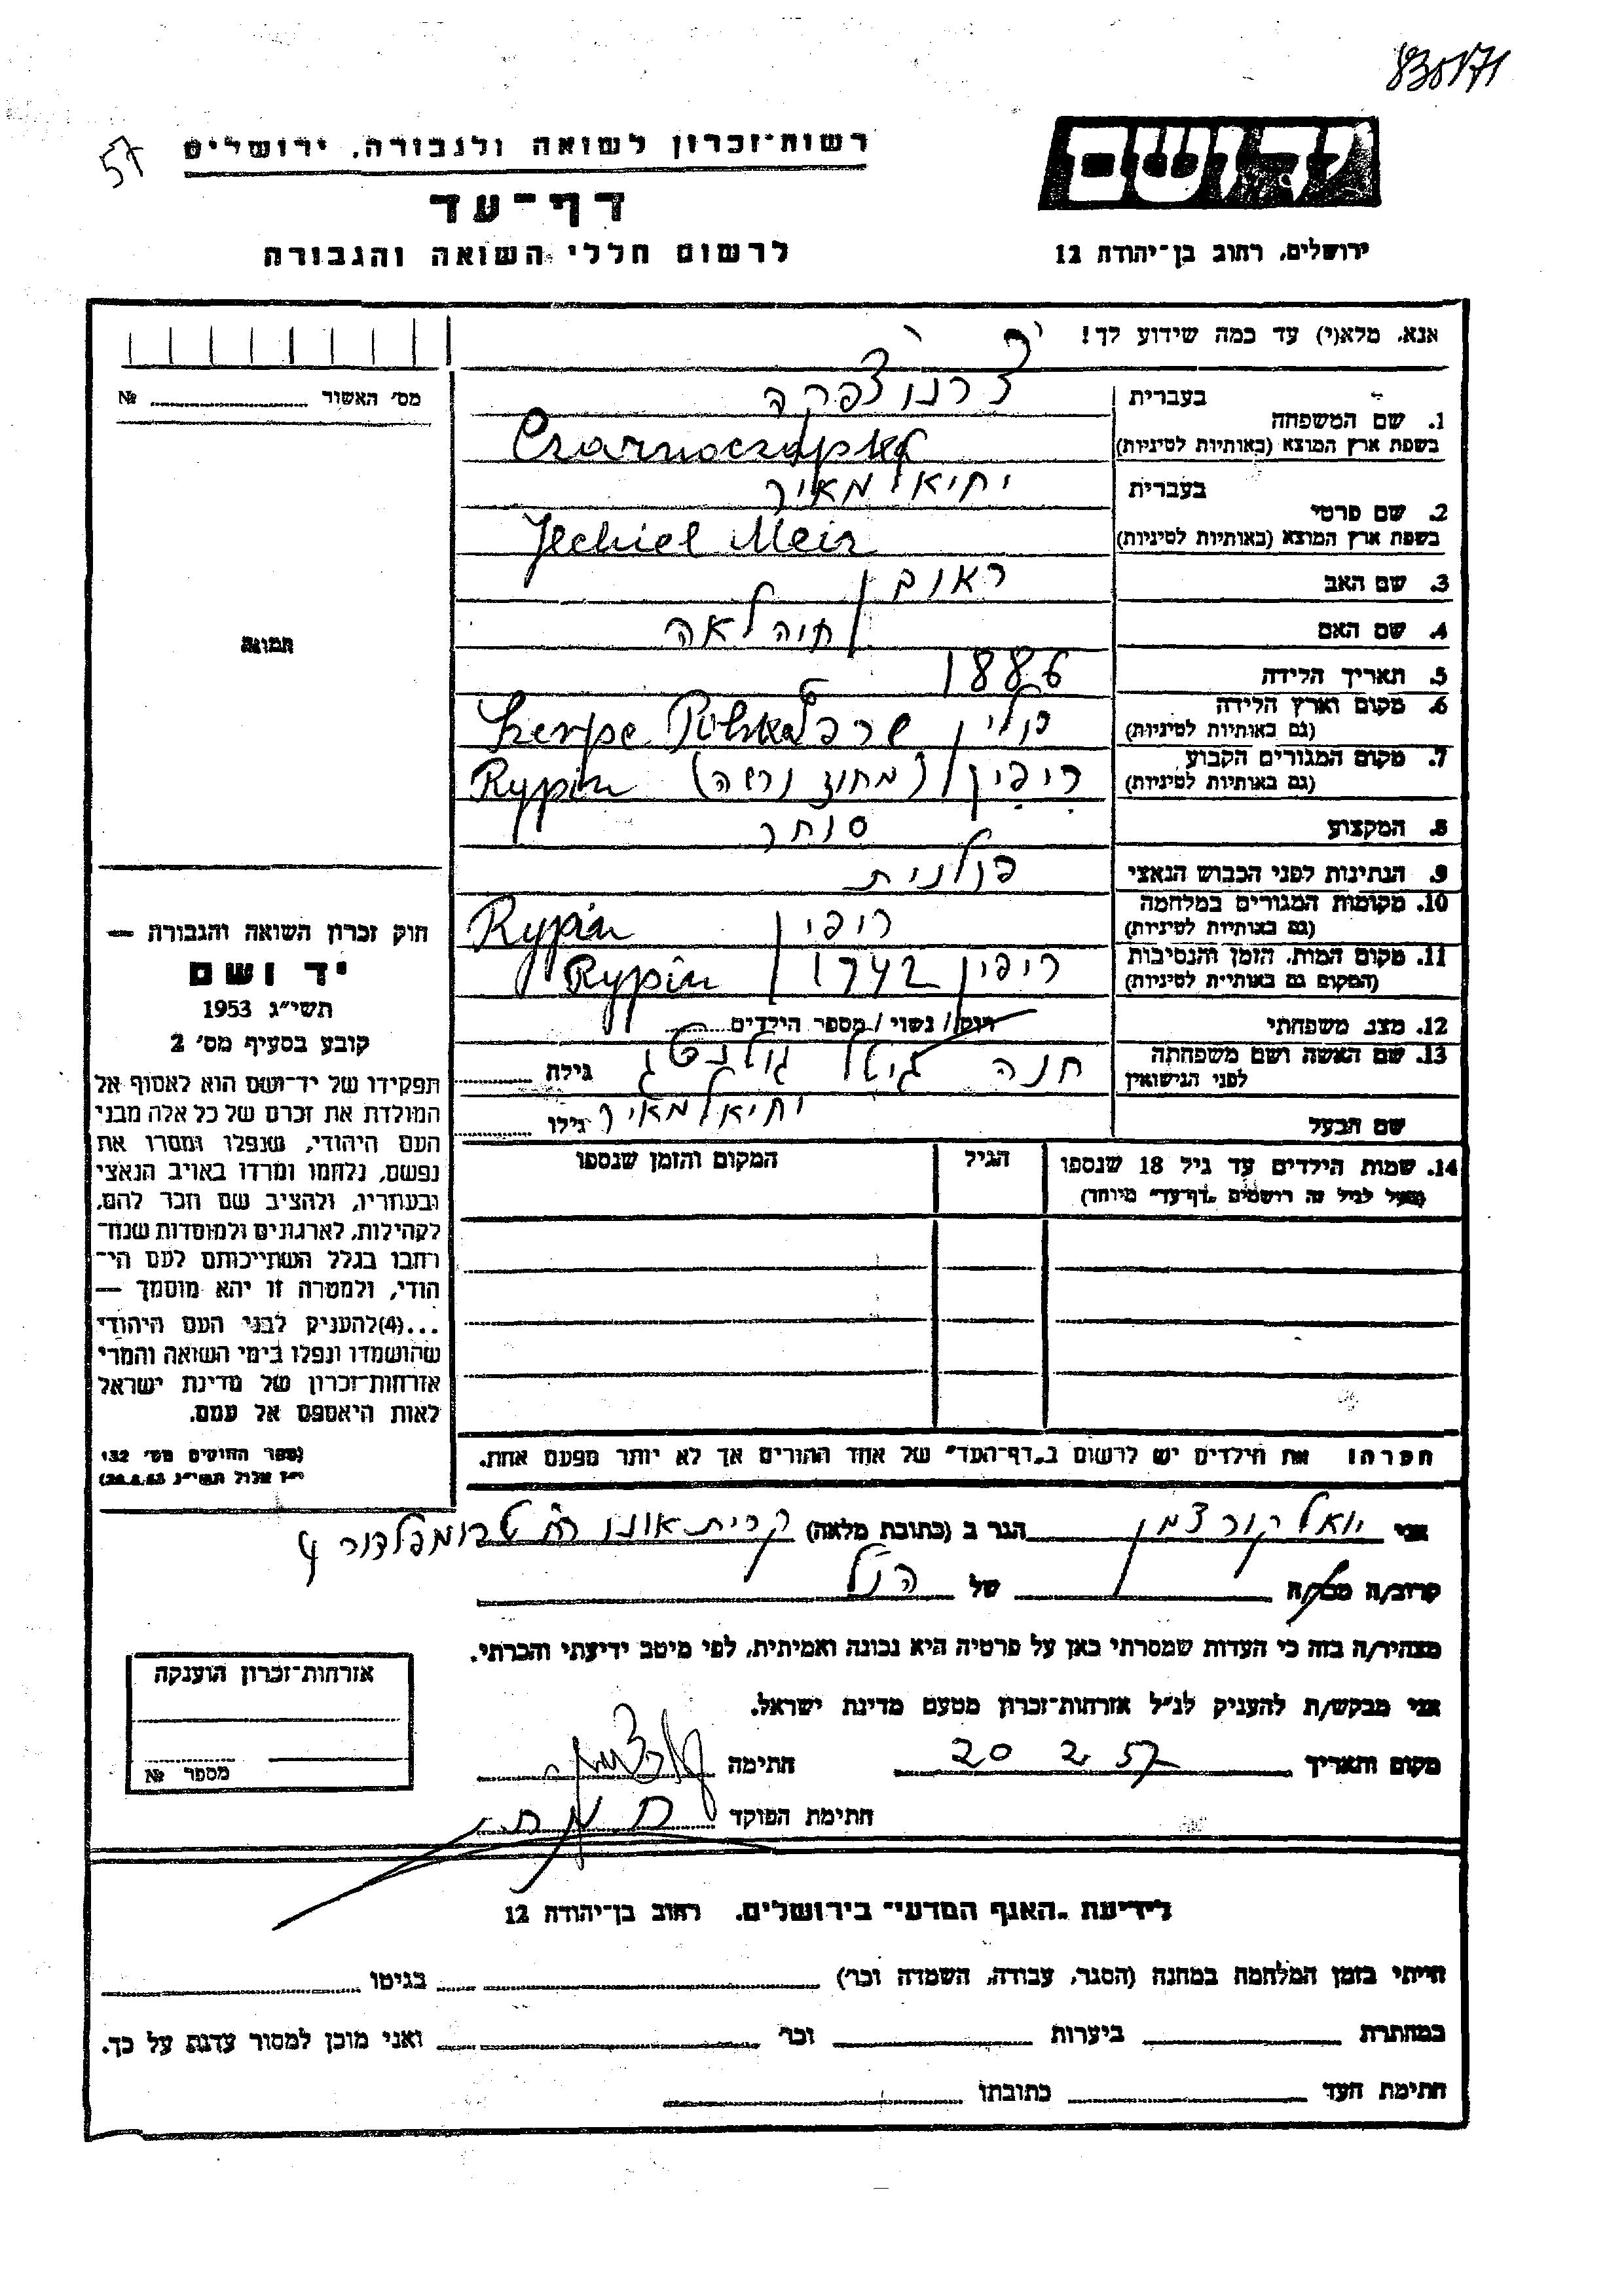 830171
57
רשות־זכרון לשואה ולגבורה, ירושלים
יד ושם
דף־עד
לרשום חללי השואה והגבורה
ירושלים, רחוב בן־יהודה 12
אנא, מלא(י) עד כמה שידוע לך!
מס׳ האשור № 
בעברית
1. שם המשפחה
בשפת ארץ המוצא (באותיות לטיניות)
Czarnoczapka
בעברית יחיאל מאיר
2. שם פרטי
בשפת ארץ המוצא (באותיות לטיניות)
Jechiel Meir
3. שם האב ראובן
4. שם האם חיה לאה
תמונה
5. תאריך הלידה 1886
6. מקום וארץ הלידה פולין Polska
(גם באותיות לטיניות)
7. מקום המגורים הקבוע ריפין (מחוז ורשה) Rypin
(גם באותיות לטיניות)
8. המקצוע סוחר
9. הנתינות לפני הכבוש הנאצי פולנית
10. מקומות המגורים במלחמה ריפין Rypin
(גם באותיות לטיניות)
11. מקום המות, הזמן והנסיבות ריפין 1942 Rypin
(המקום גם באותיות לטיניות)
12. מצב משפחתי רווק / נשוי / מספר הילדים
13. שם האשה ושם משפחתה חנה גיטל גילה
לפני הנישואין
שם הבעל יחיאל מאיר גילו
14. שמות הילדים עד גיל 18 שנספו הגיל המקום והזמן שנספו
(מעל לגיל זה רושמים „דף־עד״ מיוחד)
חוק זכרון השואה והגבורה —
יד ושם
תשי״ג 1953
קובע בסעיף מס׳ 2
תפקידו של יד־ושם הוא לאסוף אל
המולדת את זכרם של כל אלה מבני
העם היהודי, שנפלו ומסרו את
נפשם, נלחמו ומרדו באויב הנאצי
ובעוזריו, ולהציב שם וזכר להם,
לקהילות, לארגונים ולמוסדות שנח־
רבו בגלל השתייכותם לעם הי־
הודי, ולמטרה זו יהא מוסמך —
...(4)להעניק לבני העם היהודי
שהושמדו ונפלו בימי השואה והמרי
אזרחות־זכרון של מדינת ישראל
לאות היאספם אל עמם.
(ספר החוקים מס׳ 132
י״ז אלול תשי״ג 28.8.53)
הערה: את הילדים יש לרשום ב„דף־העד״ של אחד ההורים אך לא יותר מפעם אחת.
אני יואל קורצמן הגר ב (כתובת מלאה) קרית אונו רח׳ טרומפלדור 4
קרוב/ה מכר/ה של הנ״ל
מצהיר/ה בזה כי העדות שמסרתי כאן על פרטיה היא נכונה ואמיתית, לפי מיטב ידיעתי והכרתי.
אני מבקש/ת להעניק לנ״ל אזרחות־זכרון מטעם מדינת ישראל.
מקום ותאריך 20 2 57 חתימה
חתימת הפוקד
אזרחות־זכרון הוענקה
מספר №
לידיעת „האגף המדעי״ בירושלים, רחוב בן־יהודה 12
הייתי בזמן המלחמה במחנה (הסגר, עבודה, השמדה וכו׳) בגיטו
במחתרת ביערות וכו׳ ואני מוכן למסור עדות על כך.
חתימת העד כתובתו